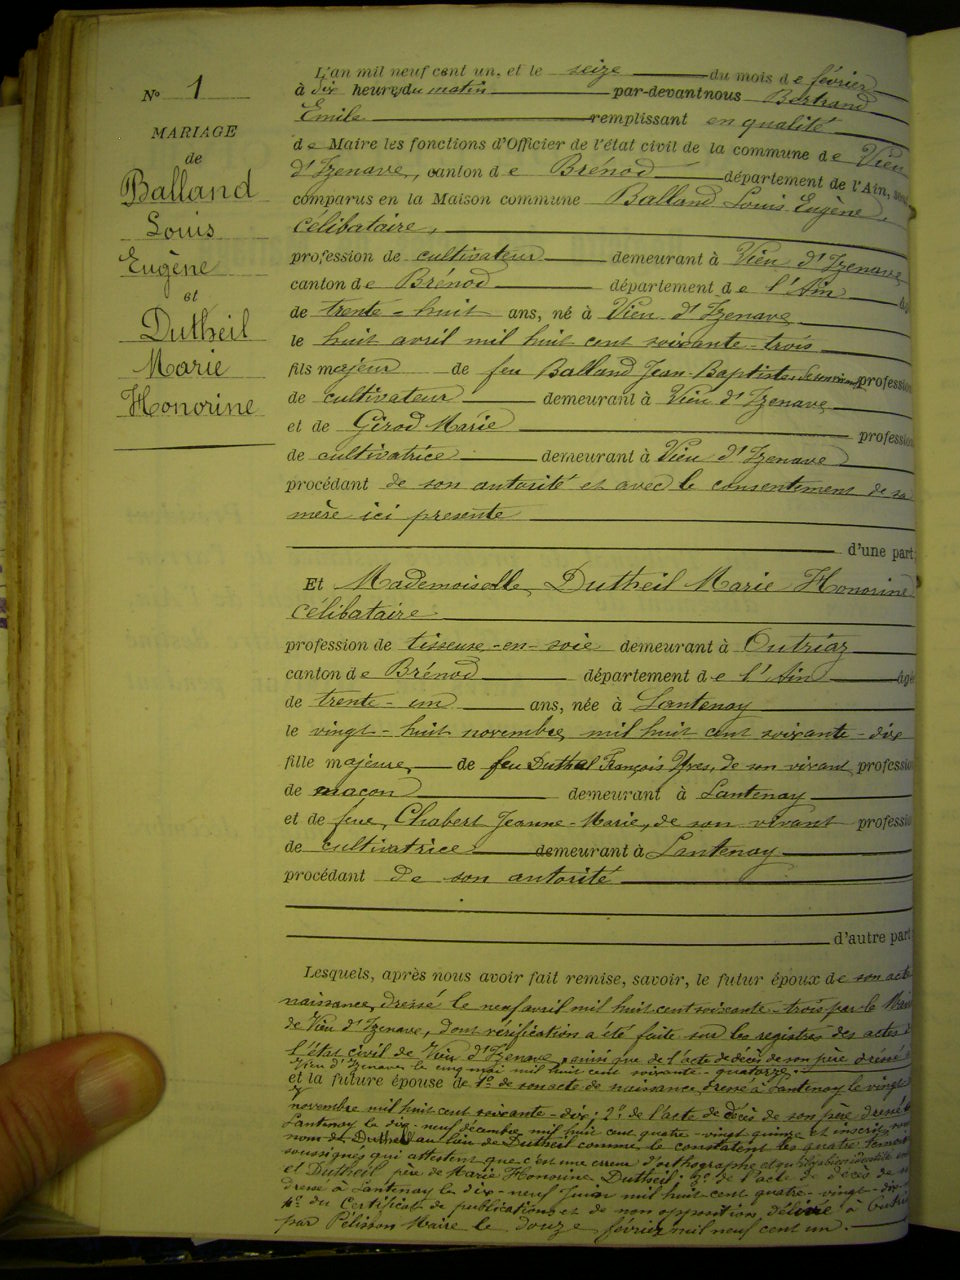 N° 1
MARIAGE
de
Balland
Louis
Eugène
et
Dutheil
Marie
Honorine
L'an mil neuf cent un, et le seize du mois de février
à dix heures du matin par-devant nous Bertrand
Emile remplissant en qualité
de Maire les fonctions d'Officier de l'état civil de la commune de Vieu
d'Izenave, canton de Brénod département de l'Ain, sont
comparus en la Maison commune Balland Louis Eugène,
célibataire,
profession de cultivateur demeurant à Vieu d'Izenave
canton de Brénod département de l'Ain âgé
de trente-huit ans, né à Vieu d'Izenave
le huit avril mil huit cent soixante-trois
fils majeur de feu Balland Jean-Baptiste, de son vivant, profession
de cultivateur demeurant à Vieu d'Izenave
et de Girod Marie profession
de cultivatrice demeurant à Vieu d'Izenave
procédant de son autorité et avec le consentement de sa
mère ici présente
d'une part;
Et Mademoiselle Dutheil Marie Honorine
célibataire
profession de tisseuse-en-soie demeurant à Outriaz
canton de Brénod département de l'Ain âgée
de trente-un ans, née à Lantenay
le vingt-huit novembre mil huit cent soixante-dix
fille majeure de feu Duthel François Yves, de son vivant profession
de maçon demeurant à Lantenay
et de feue Chabert Jeanne-Marie, de son vivant profession
de cultivatrice demeurant à Lantenay
procédant de son autorité
d'autre part;
Lesquels, après nous avoir fait remise, savoir, le futur époux de son acte
naissance, dressé le neuf avril mil huit cent soixante-trois par le Maire
de Vieu d'Izenave, dont vérification a été faite sur les registres des actes
l'état civil de Vieu d'Izenave, ainsi que de l'acte de décès de son père dressé à
Vieu d'Izenave le cinq mai mil huit cent soixante-quatorze.
et la future épouse de 1° de son acte de naissance dressé à Lantenay le vingt
novembre mil huit cent soixante-dix; 2° de l'acte de décès de son père dressé à
Lantenay le dix-neuf décembre mil huit cent quatre-vingt quinze et inscrit
nom de Duthel au lieu de Dutheil comme le constatent les quatre témoins
soussignés qui attestent que c'est une erreur d'orthographe et qu'il y a bien identité
et Dutheil père de Marie Honorine Dutheil; 3° de l'acte de décès de sa
dressé à Lantenay le dix-neuf Juin mil huit cent quatre-vingt-dix
4° du Certificat de publications et de non opposition, délivré à Outriaz
par Pélisson Maire le douze février mil neuf cent un.